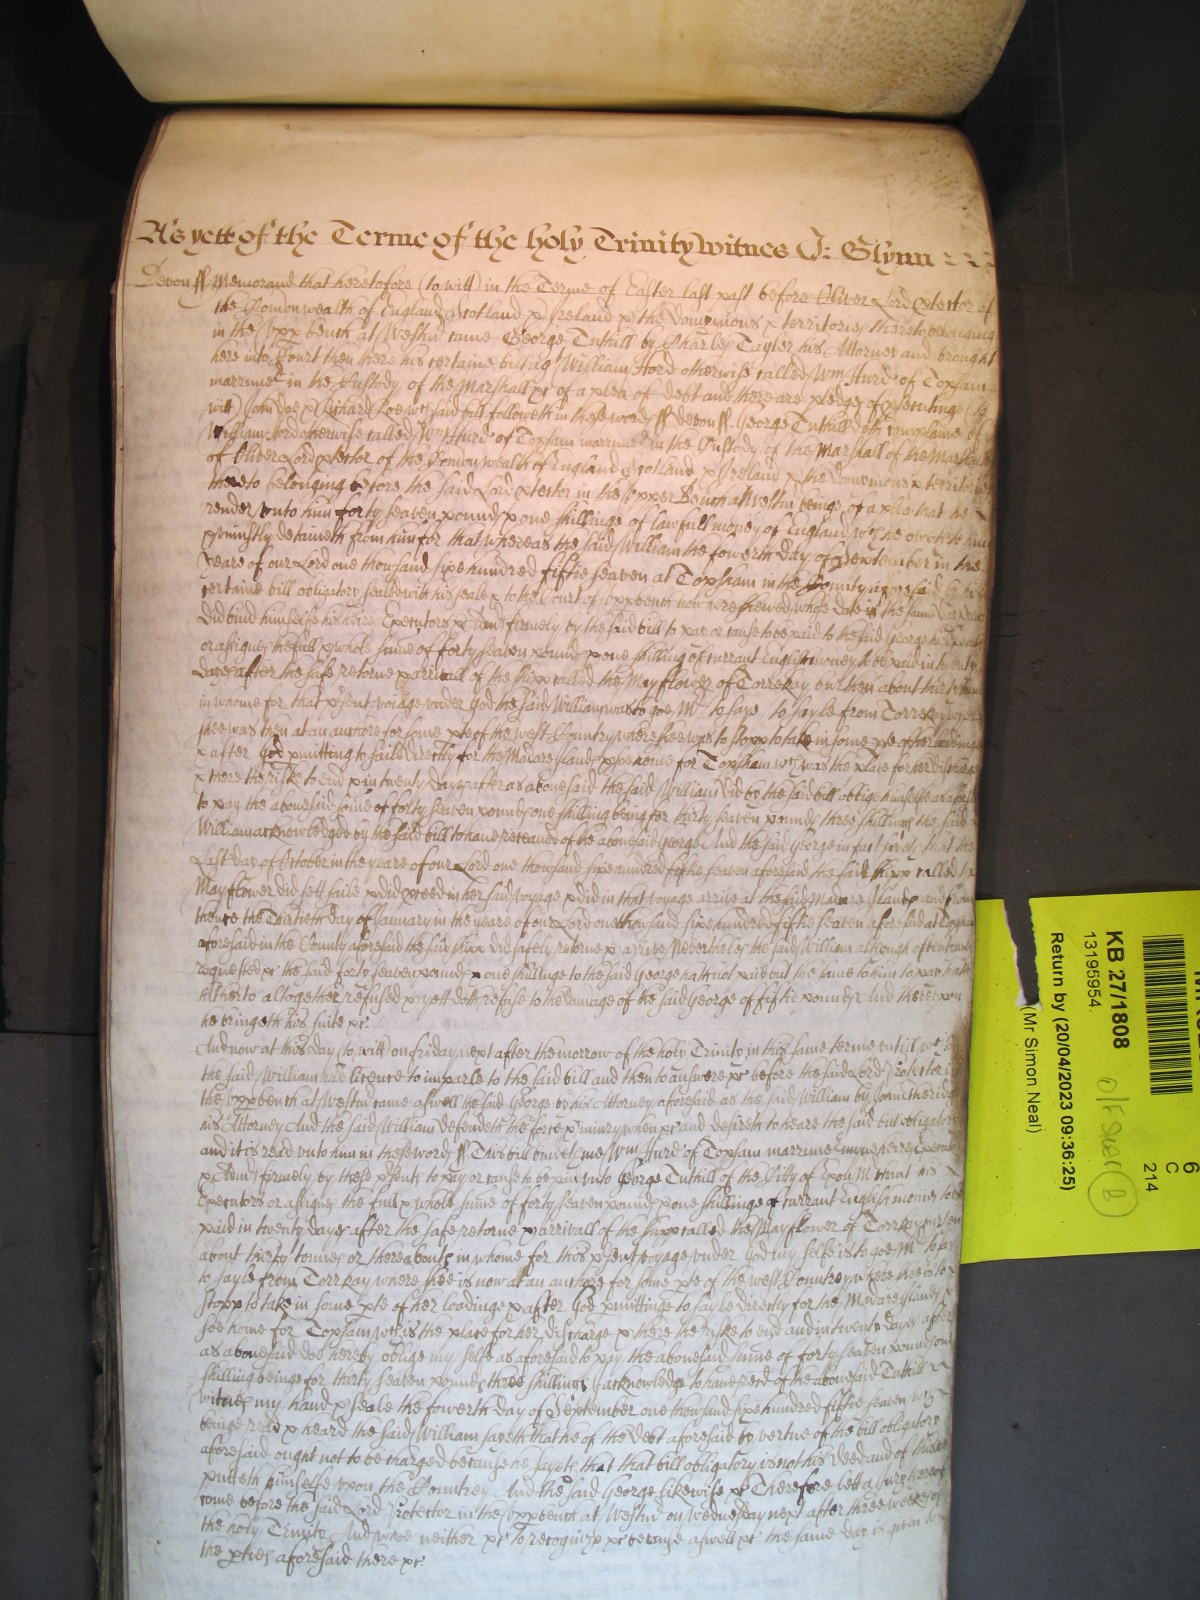 As yett of the Terme of the holy Trinity witnes J: Glynn
Devon ss Memorand that heretofore (to witt) in the Terme of Easter last past before Oliver Lord Protector of
the Comonwealth of England Scotland & Ireland & the dominions & territories thereto belonging
in the Upp bench at Westm came George Tuthill by Charles Tayler his Attorney and brought
here into Court then there his certaine bill agt William Hord otherwise called Wm Hurd of Topsam
marriner in the Custody of the Marshall &c of a plea of debt and there are pledges of prosecutinge (to
witt) John doe & Richard Roe wch said bill followeth in these words ss devon ss George Tuthill doth complaine of
William Hord otherwise called Wm Hurd of Topsam marriner in the Custody of the Marshall of the Marshalsey
of Oliver Lord Protector of the Comonwealth of England Scotland & Ireland & the dominions & territories
thereto belonging before the said Lord Protector in the Upper Bench at Westm beinge of a plea that he
render unto him forty seaven pounds & one shillinge of lawfull money of England wch he oweth to him &
uniustly detaineth from him for that whereas the said William the fowerth day of September in the
yeare of our Lord one thousand sixe hundred fiftie seaven at Topsham in the County aforesaid by his
certaine bill obligatory sealed with his seale & to the Court of Upp bench now here shewed whose date is the same day & yeare
did bind himselfe his heires Executors & Adm firmely by the said bill to pay or cause to be paid to the said George his Executors
or assignes the full & whole summe of forty seaven pounds & one shilling of currant English money to be paid in twenty
dayes after the safe retorne & arrivall of the shipp called the Mayflower of Torrekay burthen about thirty tonnes
in whome for that p'sent voiage under God the said William was to goe Mr to saye to sayle from Torrekay where
shee was then at an anchore for some pte of the West Country where shee was to stopp to take in some pte of her ladinge
& after god pmitting to saile directly for the Madare Islands & soe home for Topsham wch was the place for her discharge
& there the riske to end & in twenty dayes after as abovesaid the said William did by the said bill oblige himselfe as aforesaid
to pay the abovesaid sume of forty seaven pounds one shilling being for thirty seaven pounds three shillings the said
William acknowledged by the said bill to have receaved of the abovesaid George And the said George in fact sayeth that the
last day of October in the yeare of our Lord one thousand sixe hundred fiftie seaven aforesaid the said shipp called the
Mayflower did sett saile & did proceed in her said voyage & did in that voyage arrive at the said Madare Islands and from
thence the Thirtieth day of January in the yeare of our Lord one thousand sixe hundred fiftie seaven aforesaid at Topsam
aforesaid in the County aforesaid the said shipp did safely retorne & arrive Neverthelesse the said William although oftentimes
requested &c the said forty seaven pounds & one shillinge to the said George hath not paid but the same to him to pay hath
hitherto altogether refused & yett doth refuse to the damage of the said George of fiftie pounds And thereupon
he bringeth his suite &c
And now at this day (to witt) on friday next after the morrow of the holy Trinity in this same terme untill wch
the said William had licence to imparle to the said bill and then to answere &c before the said Lord Protector in
the Upp bench at Westm came aswell the said George by his Attorney aforesaid as the said William by John
his Attorney And the said William defendeth the force & iniury when &c and desireth to heare the said bill obligatory
and it is read unto him in these words ss This bill bindeth me Wm Hurd of Topsam marriner my heires Executors
& Adm firmely by these p'sents to pay or cause to be paid unto George Tuthill of the Citty of Exon Mchant his
Executors or assignes the full & whole sume of forty seaven pounds & one shillinge of currant English monies to be
paid in twenty dayes after the safe retorne & arrivall of the shipp called the Mayflower of Torrkay burthen
about thirty tonnes or thereabouts in whome for this p'sent voyage under God my selfe is to goe Mr to say
to sayle from Torrkay where shee is now at an anchore for some pte of the west Countrey where shee is to
stopp to take in some pte of her loadinge & after God pmittinge to sayle directly for the Madare Islands &
soe home for Topsam wch is the place for her discharge & there the riske to end and in twenty dayes after
as abovesaid doe hereby oblige my selfe as aforesaid to pay the abovesaid sume of forty seaven pounds one
shilling beinge for thirty seaven pounds three shillings I acknowledge to have recd of the abovesaid Tuthill
witnes my hand & seale the fowerth day of September one thousand sixe hundred fiftie seaven wch
beinge read & heard the said William sayeth that he of the debt aforesaid by vertue of the bill obligatory
aforesaid ought not to be charged because he sayeth that that bill obligatory is not his deed and of this he
putteth himselfe upon the Countrey And the said George likewise &c Therefore lett a Jury thereof
come before the said Lord Protector in the Upp bench at Westm on Wednesday next after three weekes of
the holy Trinity And whoe neither &c to recognize &c because aswell &c the same day is given to
the pties aforesaid there &c
KB 27/1808
13195954
Return by (20/04/2023 09:36:25)
(Mr Simon Neal)
6
C
214
B